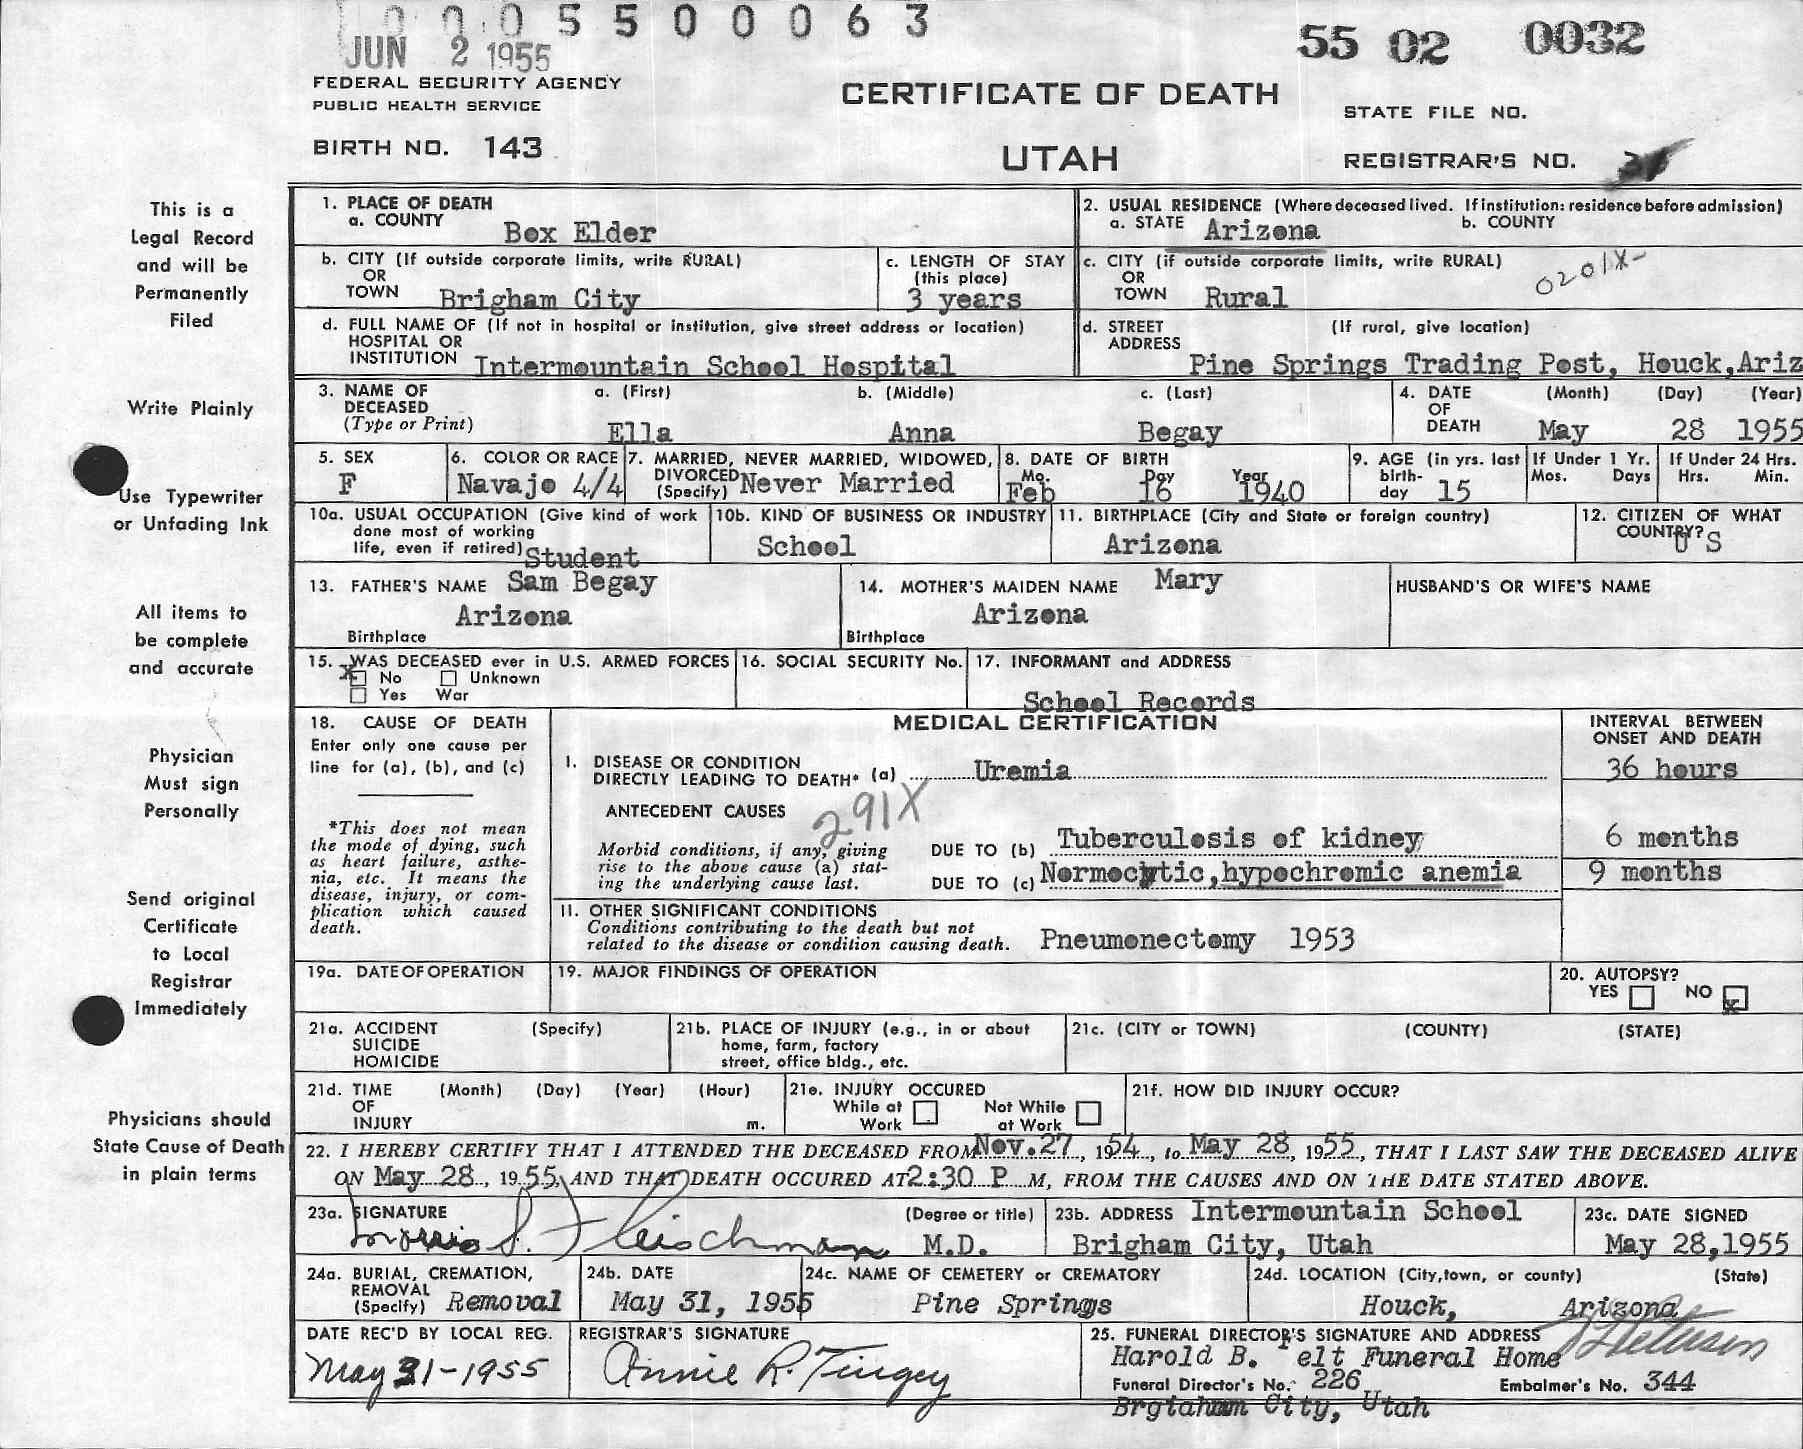 0005500063
JUN 2 1955
55 02 0032
FEDERAL SECURITY AGENCY
PUBLIC HEALTH SERVICE
CERTIFICATE OF DEATH
STATE FILE NO.
BIRTH NO. 143
UTAH
REGISTRAR'S NO.
This is a
Legal Record
and will be
Permanently
Filed
Write Plainly
Use Typewriter
or Unfading Ink
All items to
be complete
and accurate
Physician
Must sign
Personally
Send original
Certificate
to Local
Registrar
Immediately
Physicians should
State Cause of Death
in plain terms
1. PLACE OF DEATH
a. COUNTY Box Elder
2. USUAL RESIDENCE (Where deceased lived. If institution: residence before admission)
a. STATE Arizona b. COUNTY
b. CITY (If outside corporate limits, write RURAL)
OR
TOWN Brigham City
c. LENGTH OF STAY
(this place)
3 years
c. CITY (if outside corporate limits, write RURAL)
OR
TOWN Rural
0201X-
d. FULL NAME OF (If not in hospital or institution, give street address or location)
HOSPITAL OR
INSTITUTION Intermountain School Hospital
d. STREET (If rural, give location)
ADDRESS
Pine Springs Trading Post, Houck,Ariz
3. NAME OF a. (First) b. (Middle) c. (Last)
DECEASED
(Type or Print) Ella Anna Begay
4. DATE (Month) (Day) (Year)
OF
DEATH May 28 1955
5. SEX
F
6. COLOR OR RACE
Navajo 4/4
7. MARRIED, NEVER MARRIED, WIDOWED,
DIVORCED
(Specify) Never Married
8. DATE OF BIRTH
Mo. Day Year
Feb 16 1940
9. AGE (in yrs. last
birth-
day 15
If Under 1 Yr.
Mos. Days
If Under 24 Hrs.
Hrs. Min.
10a. USUAL OCCUPATION (Give kind of work
done most of working
life, even if retired) Student
10b. KIND OF BUSINESS OR INDUSTRY
School
11. BIRTHPLACE (City and State or foreign country)
Arizona
12. CITIZEN OF WHAT
COUNTRY? U S
13. FATHER'S NAME Sam Begay
Arizona
Birthplace
14. MOTHER'S MAIDEN NAME Mary
Arizona
Birthplace
HUSBAND'S OR WIFE'S NAME
15. WAS DECEASED ever in U.S. ARMED FORCES
x No Unknown
Yes War
16. SOCIAL SECURITY No.
17. INFORMANT and ADDRESS
School Records
18. CAUSE OF DEATH
Enter only one cause per
line for (a), (b), and (c)
*This does not mean
the mode of dying, such
as heart failure, asthe-
nia, etc. It means the
disease, injury, or com-
plication which caused
death.
MEDICAL CERTIFICATION
INTERVAL BETWEEN
ONSET AND DEATH
I. DISEASE OR CONDITION
DIRECTLY LEADING TO DEATH* (a) Uremia 36 hours
ANTECEDENT CAUSES
291X
Morbid conditions, if any, giving
rise to the above cause (a) stat-
ing the underlying cause last.
DUE TO (b) Tuberculosis of kidney 6 months
DUE TO (c) Normocytic,hypochromic anemia 9 months
II. OTHER SIGNIFICANT CONDITIONS
Conditions contributing to the death but not
related to the disease or condition causing death. Pneumonectomy 1953
19a. DATE OF OPERATION
19. MAJOR FINDINGS OF OPERATION
20. AUTOPSY?
YES NO x
21a. ACCIDENT (Specify)
SUICIDE
HOMICIDE
21b. PLACE OF INJURY (e.g., in or about
home, farm, factory
street, office bldg., etc.
21c. (CITY or TOWN) (COUNTY) (STATE)
21d. TIME (Month) (Day) (Year) (Hour)
OF
INJURY m.
21e. INJURY OCCURED
While at Not While
Work at Work
21f. HOW DID INJURY OCCUR?
22. I HEREBY CERTIFY THAT I ATTENDED THE DECEASED FROM Nov.27, 1954, to May 28, 1955, THAT I LAST SAW THE DECEASED ALIVE
ON May 28, 1955, AND THAT DEATH OCCURED AT 2:30 P M, FROM THE CAUSES AND ON THE DATE STATED ABOVE.
23a. SIGNATURE (Degree or title)
Morris S. Fleischman M.D.
23b. ADDRESS Intermountain School
Brigham City, Utah
23c. DATE SIGNED
May 28,1955
24a. BURIAL, CREMATION,
REMOVAL
(Specify) Removal
24b. DATE
May 31, 1955
24c. NAME OF CEMETERY or CREMATORY
Pine Springs
24d. LOCATION (City,town, or county) (State)
Houck, Arizona
DATE REC'D BY LOCAL REG.
May 31-1955
REGISTRAR'S SIGNATURE
Annie R. Tingey
25. FUNERAL DIRECTOR'S SIGNATURE AND ADDRESS
Harold B. Felt Funeral Home
Funeral Director's No. 226 Embalmer's No. 344